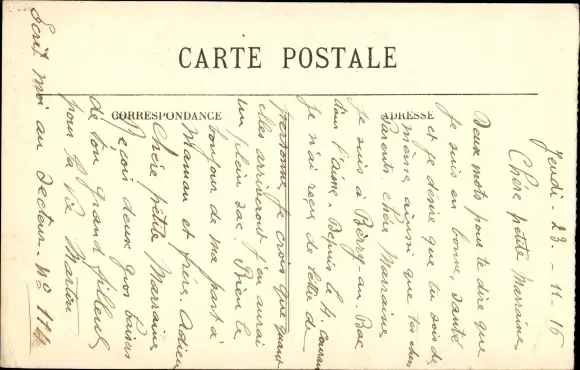 CARTE POSTALE
CORRESPONDANCE
ADRESSE
Jeudi - 23 - 11 - 16
Chère petite Marraine
Deux mots pour te dire que
je suis en bonne santé
et je désire que tu sois de
même, ainsi que tes chers
Parents chère Marraine
je suis à Berry-au-Bac
dans l'aisne. Depuis le 4 courant
je n'ai reçu de lettre de
personne, je crois que quand
elles arriveront j'en aurai
un plein sac. Bien le
bonjour de ma part à
Maman et frère. Adieu
Chère petite Marraine
Reçois deux gros baisers
de ton grand filleul
pour la vie Martin
Ecrit moi au Secteur. No 114